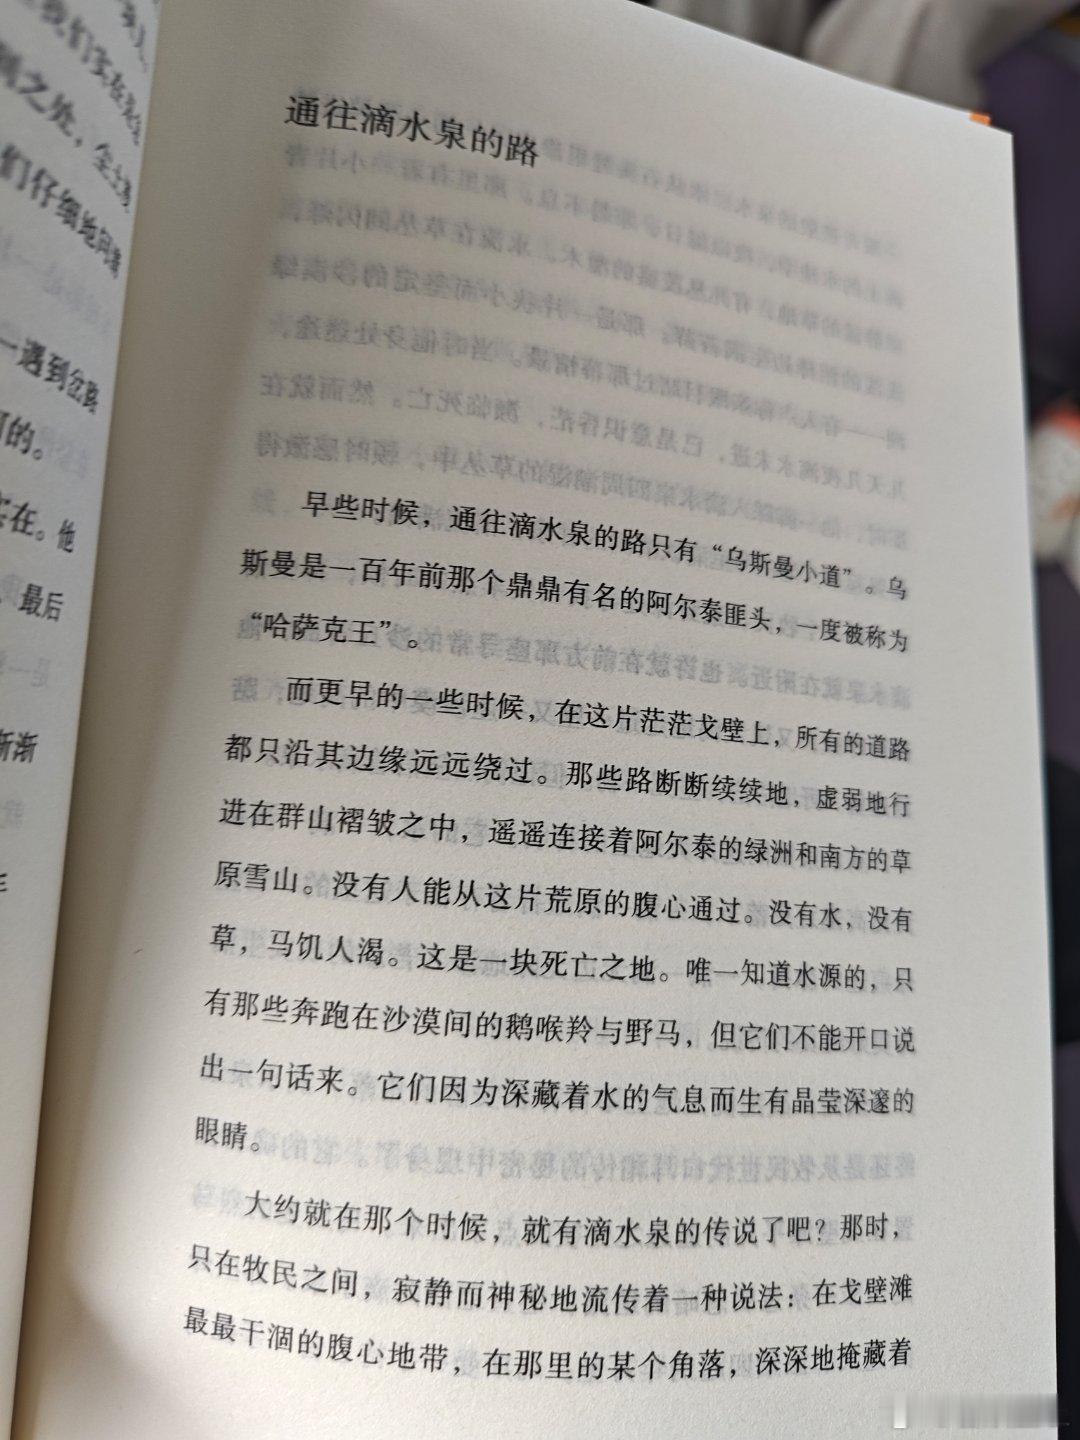 们仔细地问
一遇到岔路
的。
实在。他
最后
渐渐
通往滴水泉的路
早些时候，通往滴水泉的路只有“乌斯曼小道”。乌
斯曼是一百年前那个鼎鼎有名的阿尔泰匪头，一度被称为
“哈萨克王”。
而更早的一些时候，在这片茫茫戈壁上，所有的道路
都只沿其边缘远远绕过。那些路断断续续地，虚弱地行
进在群山褶皱之中，遥遥连接着阿尔泰的绿洲和南方的草
原雪山。没有人能从这片荒原的腹心通过。没有水，没有
草，马饥人渴。这是一块死亡之地。唯一知道水源的，只
有那些奔跑在沙漠间的鹅喉羚与野马，但它们不能开口说
出一句话来。它们因为深藏着水的气息而生有晶莹深邃的
眼睛。
大约就在那个时候，就有滴水泉的传说了吧？那时，
只在牧民之间，寂静而神秘地流传着一种说法：在戈壁滩
最最干涸的腹心地带，在那里的某个角落，深深地掩藏着